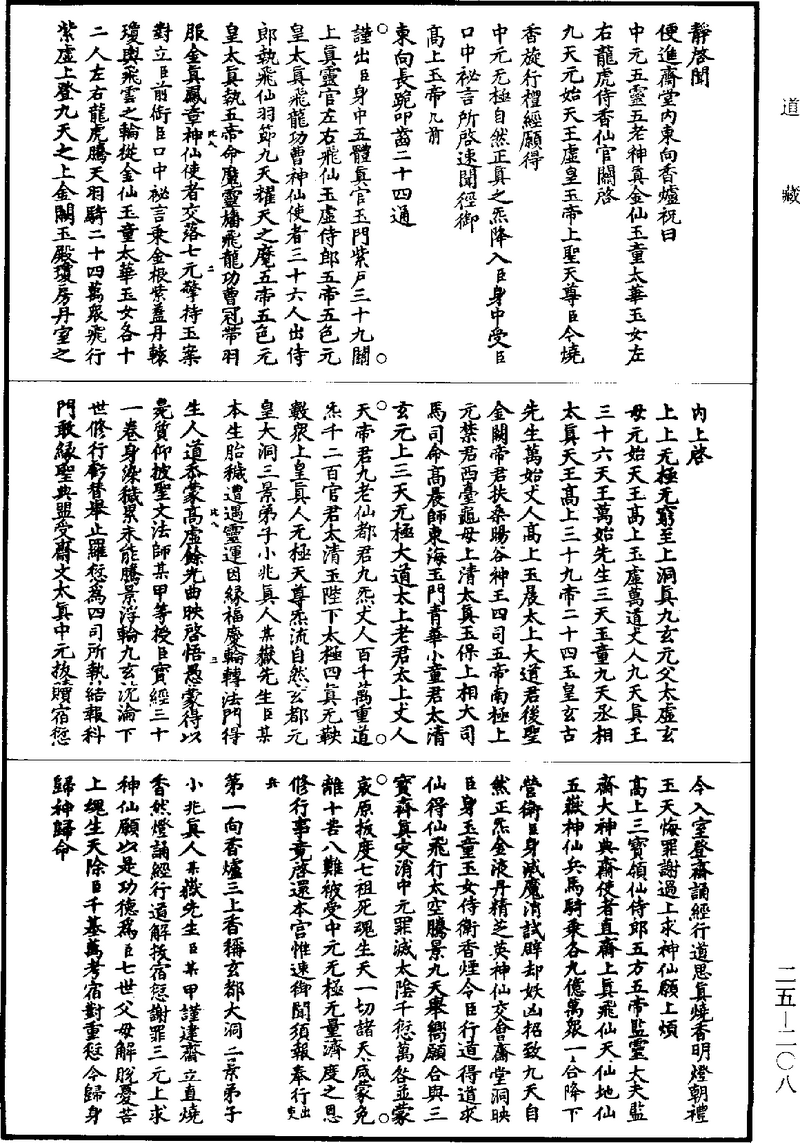 道藏
二五—二〇八
靜啓聞
便進齋堂內東向香爐祝曰
中元五靈五老神眞金仙玉童太華玉女左
右龍虎侍香仙官關啓
九天元始天王虛皇玉帝上聖天尊臣今燒
香旋行禮經願得
中元无極自然正眞之炁降入臣身中受臣
口中祕言所啓速聞徑御
高上玉帝几前
東向長跪叩齒二十四通
謹出臣身中五體眞官玉門紫戶三十九關
上眞靈官左右飛仙玉虛侍郎五帝五色元
皇太眞飛龍功曹神仙使者三十六人出侍
郎執飛仙羽節九天耀天之麾五帝五色元
皇太眞執五帝命魔靈旛飛龍功曹冠帶羽
服金眞鳳章神仙使者交落七元擎持玉案
對立臣前銜臣口中祕言乘金根紫蓋丹轅
瓊輿飛雲之輪從金仙玉童太華玉女各十
二人左右龍虎騰天羽騎二十四萬衆飛行
紫虛上登九天之上金闕玉殿瓊房丹室之
內上啓
上上无極无窮至上洞眞九玄元父太虛玄
母元始天王高上玉虛萬道丈人九天眞王
三十六天王萬始先生三天玉童九天丞相
太眞天王高上三十九帝二十四玉皇玄古
先生萬始丈人高上玉晨太上大道君後聖
金闕帝君扶桑暘谷神王四司五帝南極上
元禁君西臺龜母上清太眞玉保上相大司
馬司命高晨師東海玉門青華小童君太清
玄元上三天无極大道太上老君太上丈人
天帝君九老仙都君九炁丈人百千萬重道
炁千二百官君太清玉陛下太極四眞无鞅
數衆上皇眞人无極天尊炁流自然玄都元
皇大洞三景弟子小兆眞人某嶽先生臣某
本生胎穢遭遇靈運因緣福慶輪轉法門得
生人道忝蒙高虛餘光曲映啓悟愚蒙得以
尭質仰披聖文法師某甲等授臣寶經三十
一卷身染穢累未能騰景浮輪九玄沈淪下
世修行虧替舉止羅愆爲四司所執結報科
門敢緣聖典盟受齋文太眞中元拔贖宿愆
今入室登齋誦經行道思眞燒香明燈朝禮
玉天悔罪謝過上求神仙願上煩
高上三寶領仙侍郎五方五帝監靈大夫監
齋大神典齋使者直齋上眞飛仙天仙地仙
五嶽神仙兵馬騎乘各九億萬衆一一合降下
營衛臣身滅魔消試辟却妖凶招致九天自
然正炁金液丹精芝英神仙交會齋堂洞映
臣身玉童玉女侍衛香煙令臣行道得道求
仙得仙飛行太空騰景九天舉嚮願合與三
寶齊眞災消中元罪滅太陰千愆萬咎並蒙
哀原拔度七祖死魂生天一切諸天咸蒙免
離十苦八難被受中元无極无量濟度之恩
修行事竟啓還本宮惟速御聞須報奉行出吏
兵
第一向香爐三上香稱玄都大洞三景弟子
小兆眞人某嶽先生臣某甲謹建齋立直燒
香然燈誦經行道解拔宿愆謝罪三元上求
神仙願以是功德爲臣七世父母解脫憂苦
上魂生天除臣千基萬考宿對重愆今歸身
歸神歸命